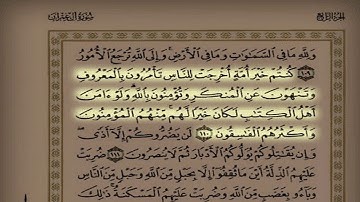 الجزء الرابع سورة آل عمران
وَلِلَّهِ مَا فِي السَّمَاوَاتِ وَمَا فِي الْأَرْضِ وَإِلَى اللَّهِ تُرْجَعُ الْأُمُورُ
١٠٩ كُنتُمْ خَيْرَ أُمَّةٍ أُخْرِجَتْ لِلنَّاسِ تَأْمُرُونَ بِالْمَعْرُوفِ
وَتَنْهَوْنَ عَنِ الْمُنكَرِ وَتُؤْمِنُونَ بِاللَّهِ وَلَوْ ءَامَنَ
أَهْلُ الْكِتَابِ لَكَانَ خَيْرًا لَّهُم مِّنْهُمُ الْمُؤْمِنُونَ
وَأَكْثَرُهُمُ الْفَاسِقُونَ ١١٠ لَن يَضُرُّوكُمْ إِلَّا أَذًى
وَإِن يُقَاتِلُوكُمْ يُوَلُّوكُمُ الْأَدْبَارَ ثُمَّ لَا يُنصَرُونَ ١١١ ضُرِبَتْ
عَلَيْهِمُ الذِّلَّةُ أَيْنَ مَا ثُقِفُوا إِلَّا بِحَبْلٍ مِّنَ اللَّهِ وَحَبْلٍ مِّنَ النَّاسِ
وَبَاءُو بِغَضَبٍ مِّنَ اللَّهِ وَضُرِبَتْ عَلَيْهِمُ الْمَسْكَنَةُ ذَٰلِكَ